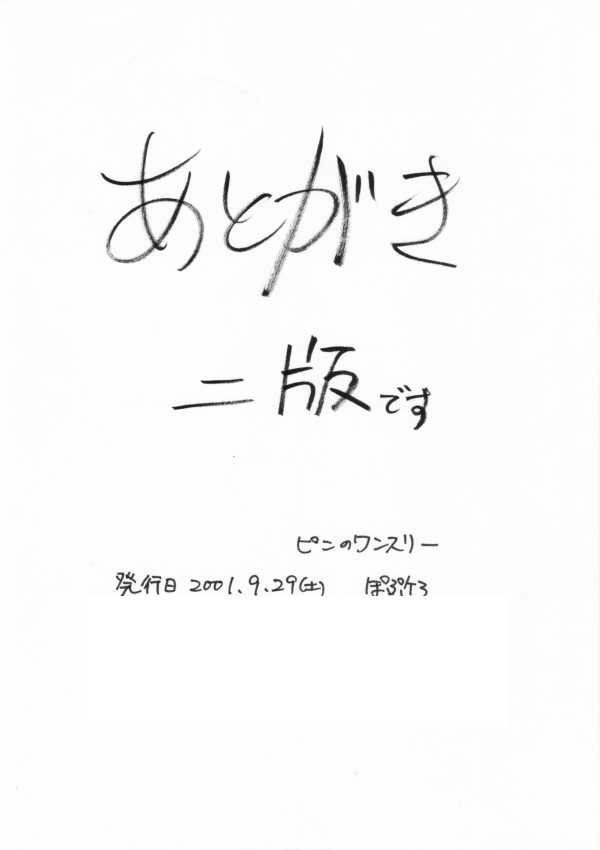 あとがき
二版です
ピンのワンスリー
発行日 2001.9.29(土) ぽぷけろ